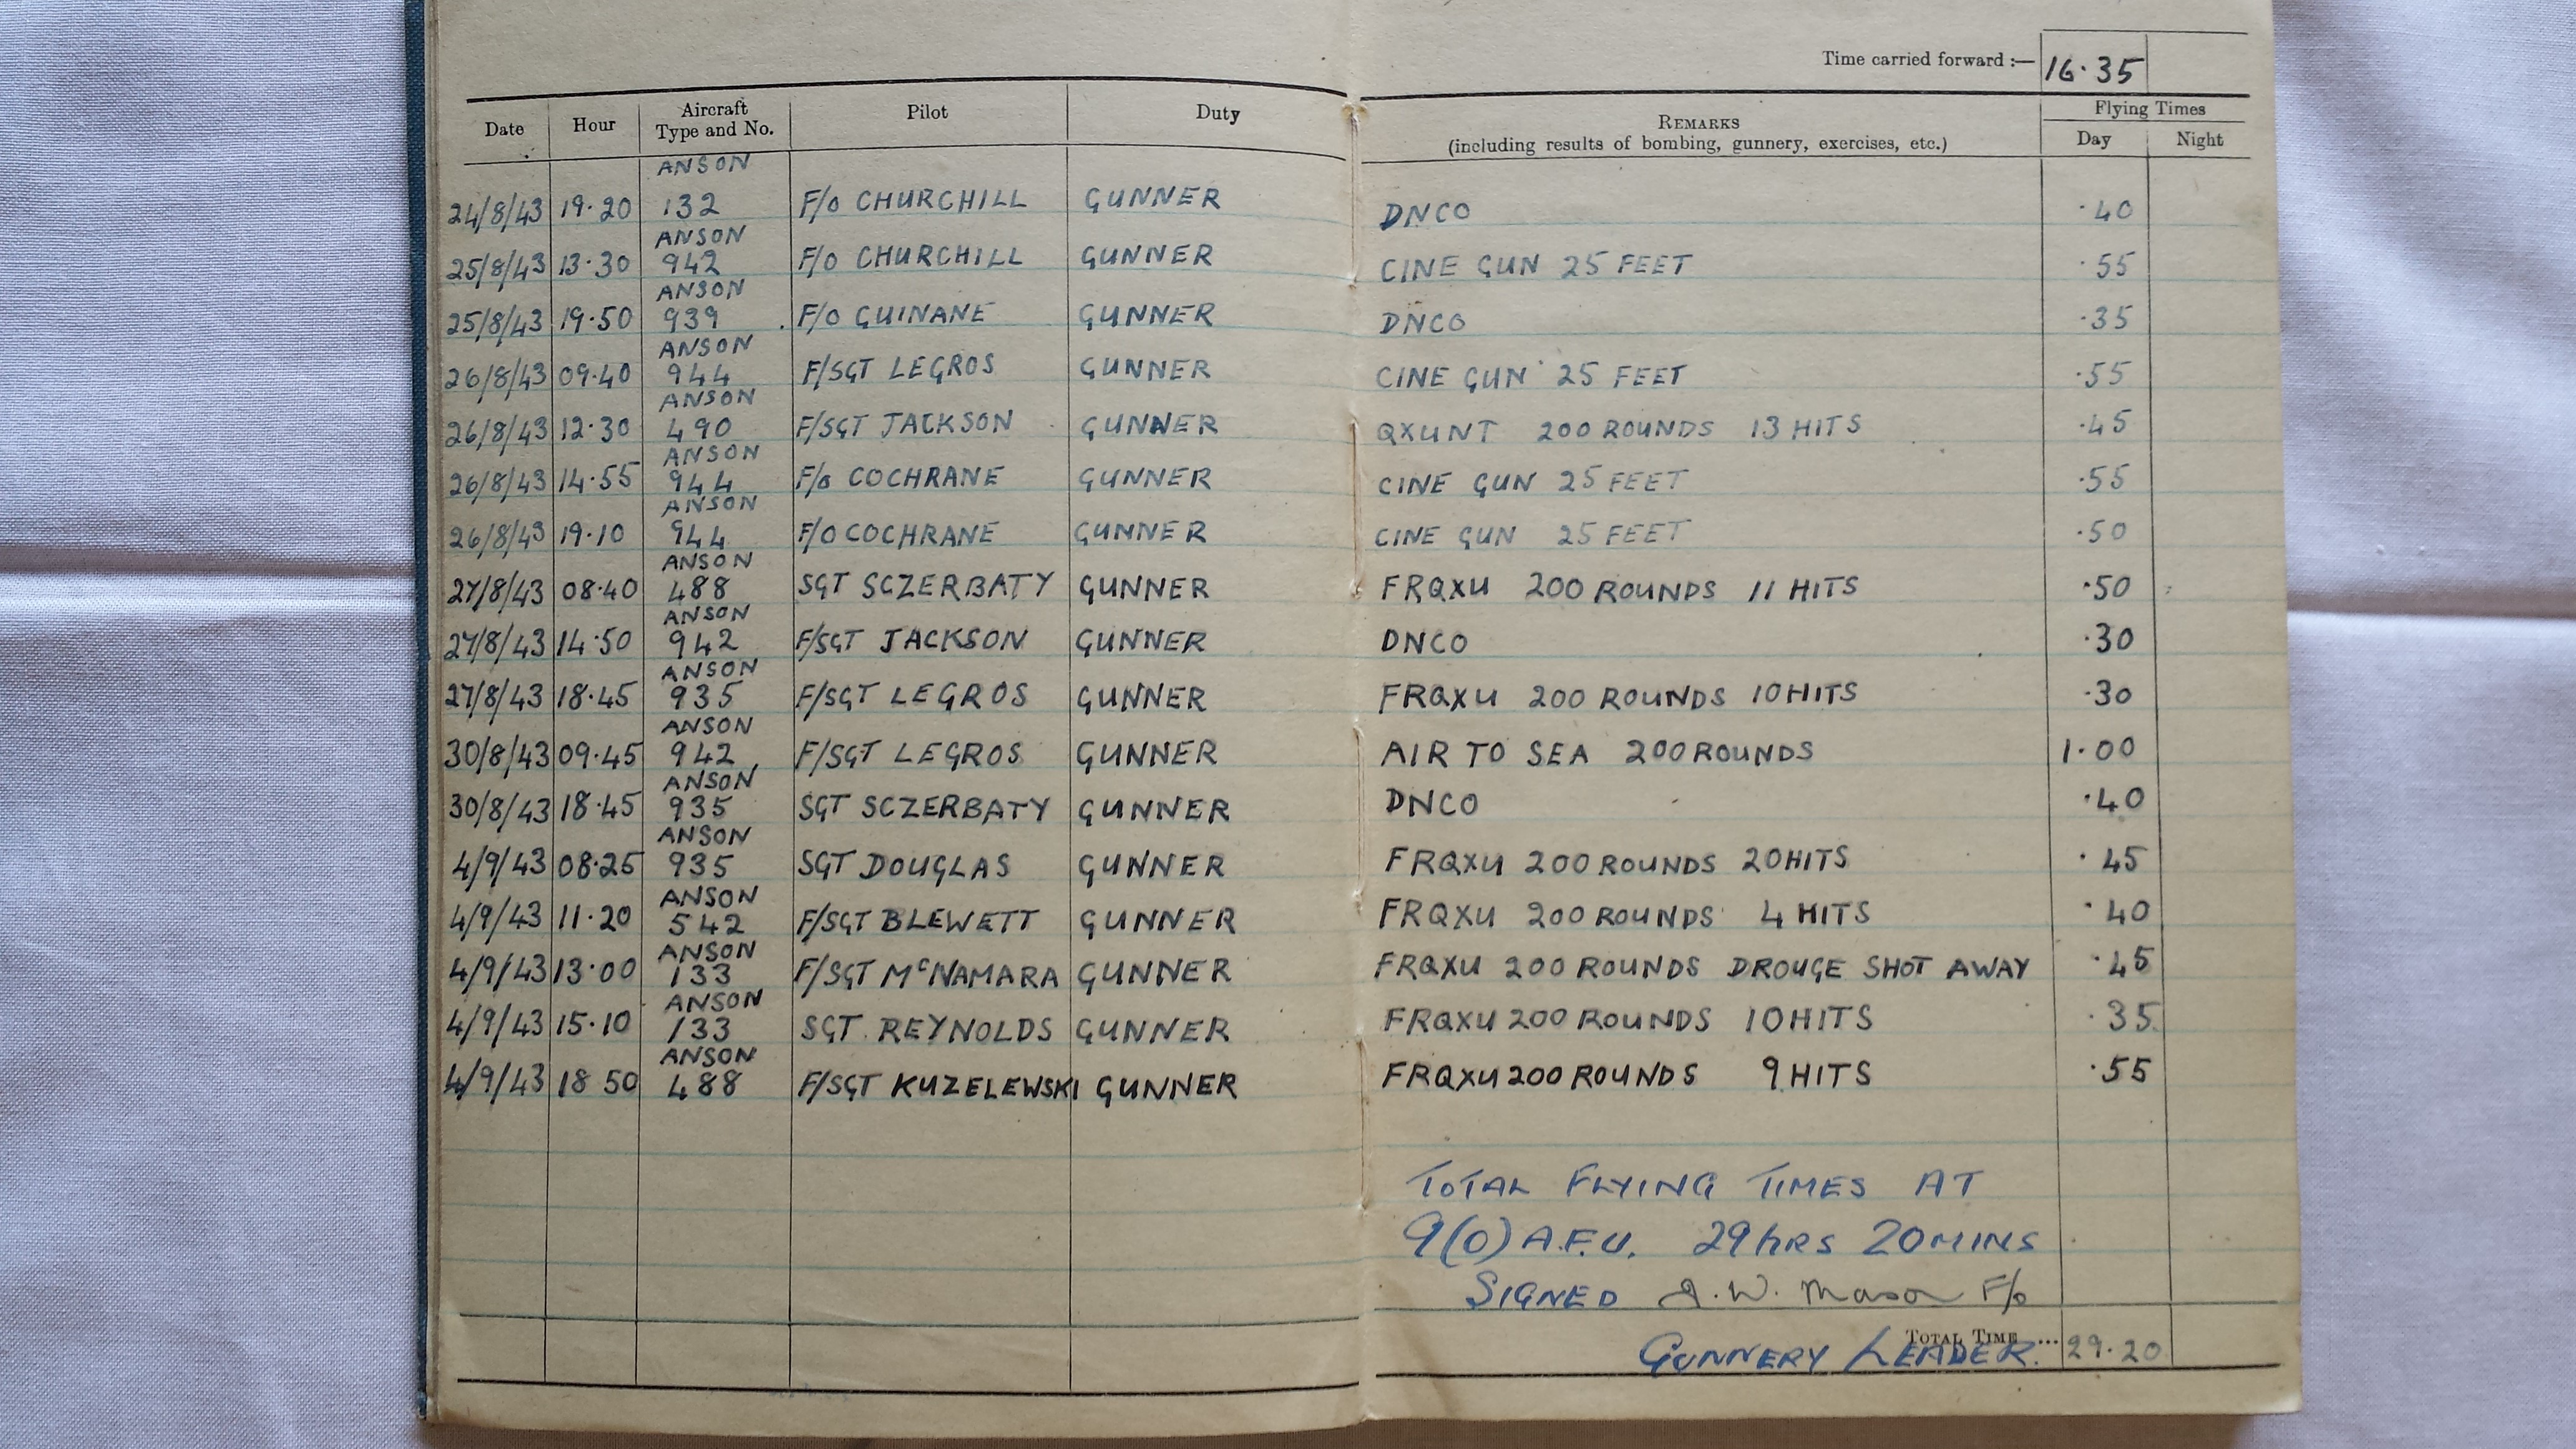 Time carried forward :— 16·35
Date Hour Aircraft Type and No. Pilot Duty REMARKS (including results of bombing, gunnery, exercises, etc.) Flying Times Day Night
ANSON
24/8/43 19·20 132 F/O CHURCHILL GUNNER DNCO ·40
ANSON
25/8/43 13·30 942 F/O CHURCHILL GUNNER CINE GUN 25 FEET ·55
ANSON
25/8/43 19·50 939 F/O GUINANE GUNNER DNCO ·35
ANSON
26/8/43 09·40 944 F/SGT LEGROS GUNNER CINE GUN 25 FEET ·55
ANSON
26/8/43 12·30 490 F/SGT JACKSON GUNNER QXUNT 200 ROUNDS 13 HITS ·45
ANSON
26/8/43 14·55 944 F/O COCHRANE GUNNER CINE GUN 25 FEET ·55
ANSON
26/8/43 19·10 944 F/O COCHRANE GUNNER CINE GUN 25 FEET ·50
ANSON
27/8/43 08·40 488 SGT SCZERBATY GUNNER FRQXU 200 ROUNDS 11 HITS ·50
ANSON
27/8/43 14·50 942 F/SGT JACKSON GUNNER DNCO ·30
ANSON
27/8/43 18·45 935 F/SGT LEGROS GUNNER FRQXU 200 ROUNDS 10 HITS ·30
ANSON
30/8/43 09·45 942 F/SGT LEGROS GUNNER AIR TO SEA 200 ROUNDS 1·00
ANSON
30/8/43 18·45 935 SGT SCZERBATY GUNNER DNCO ·40
ANSON
4/9/43 08·25 935 SGT DOUGLAS GUNNER FRQXU 200 ROUNDS 20 HITS ·45
ANSON
4/9/43 11·20 542 F/SGT BLEWETT GUNNER FRQXU 200 ROUNDS 4 HITS ·40
ANSON
4/9/43 13·00 133 F/SGT McNAMARA GUNNER FRQXU 200 ROUNDS DROUGE SHOT AWAY ·45
ANSON
4/9/43 15·10 133 SGT REYNOLDS GUNNER FRQXU 200 ROUNDS 10 HITS ·35
ANSON
4/9/43 18 50 488 F/SGT KUZELEWSKI GUNNER FRQXU 200 ROUNDS 9 HITS ·55
TOTAL FLYING TIMES AT
9(O) A.F.U. 29 hRS 20 MINS
SIGNED J. W. Mason F/o
GUNNERY LEADER.
TOTAL TIME ... 29·20